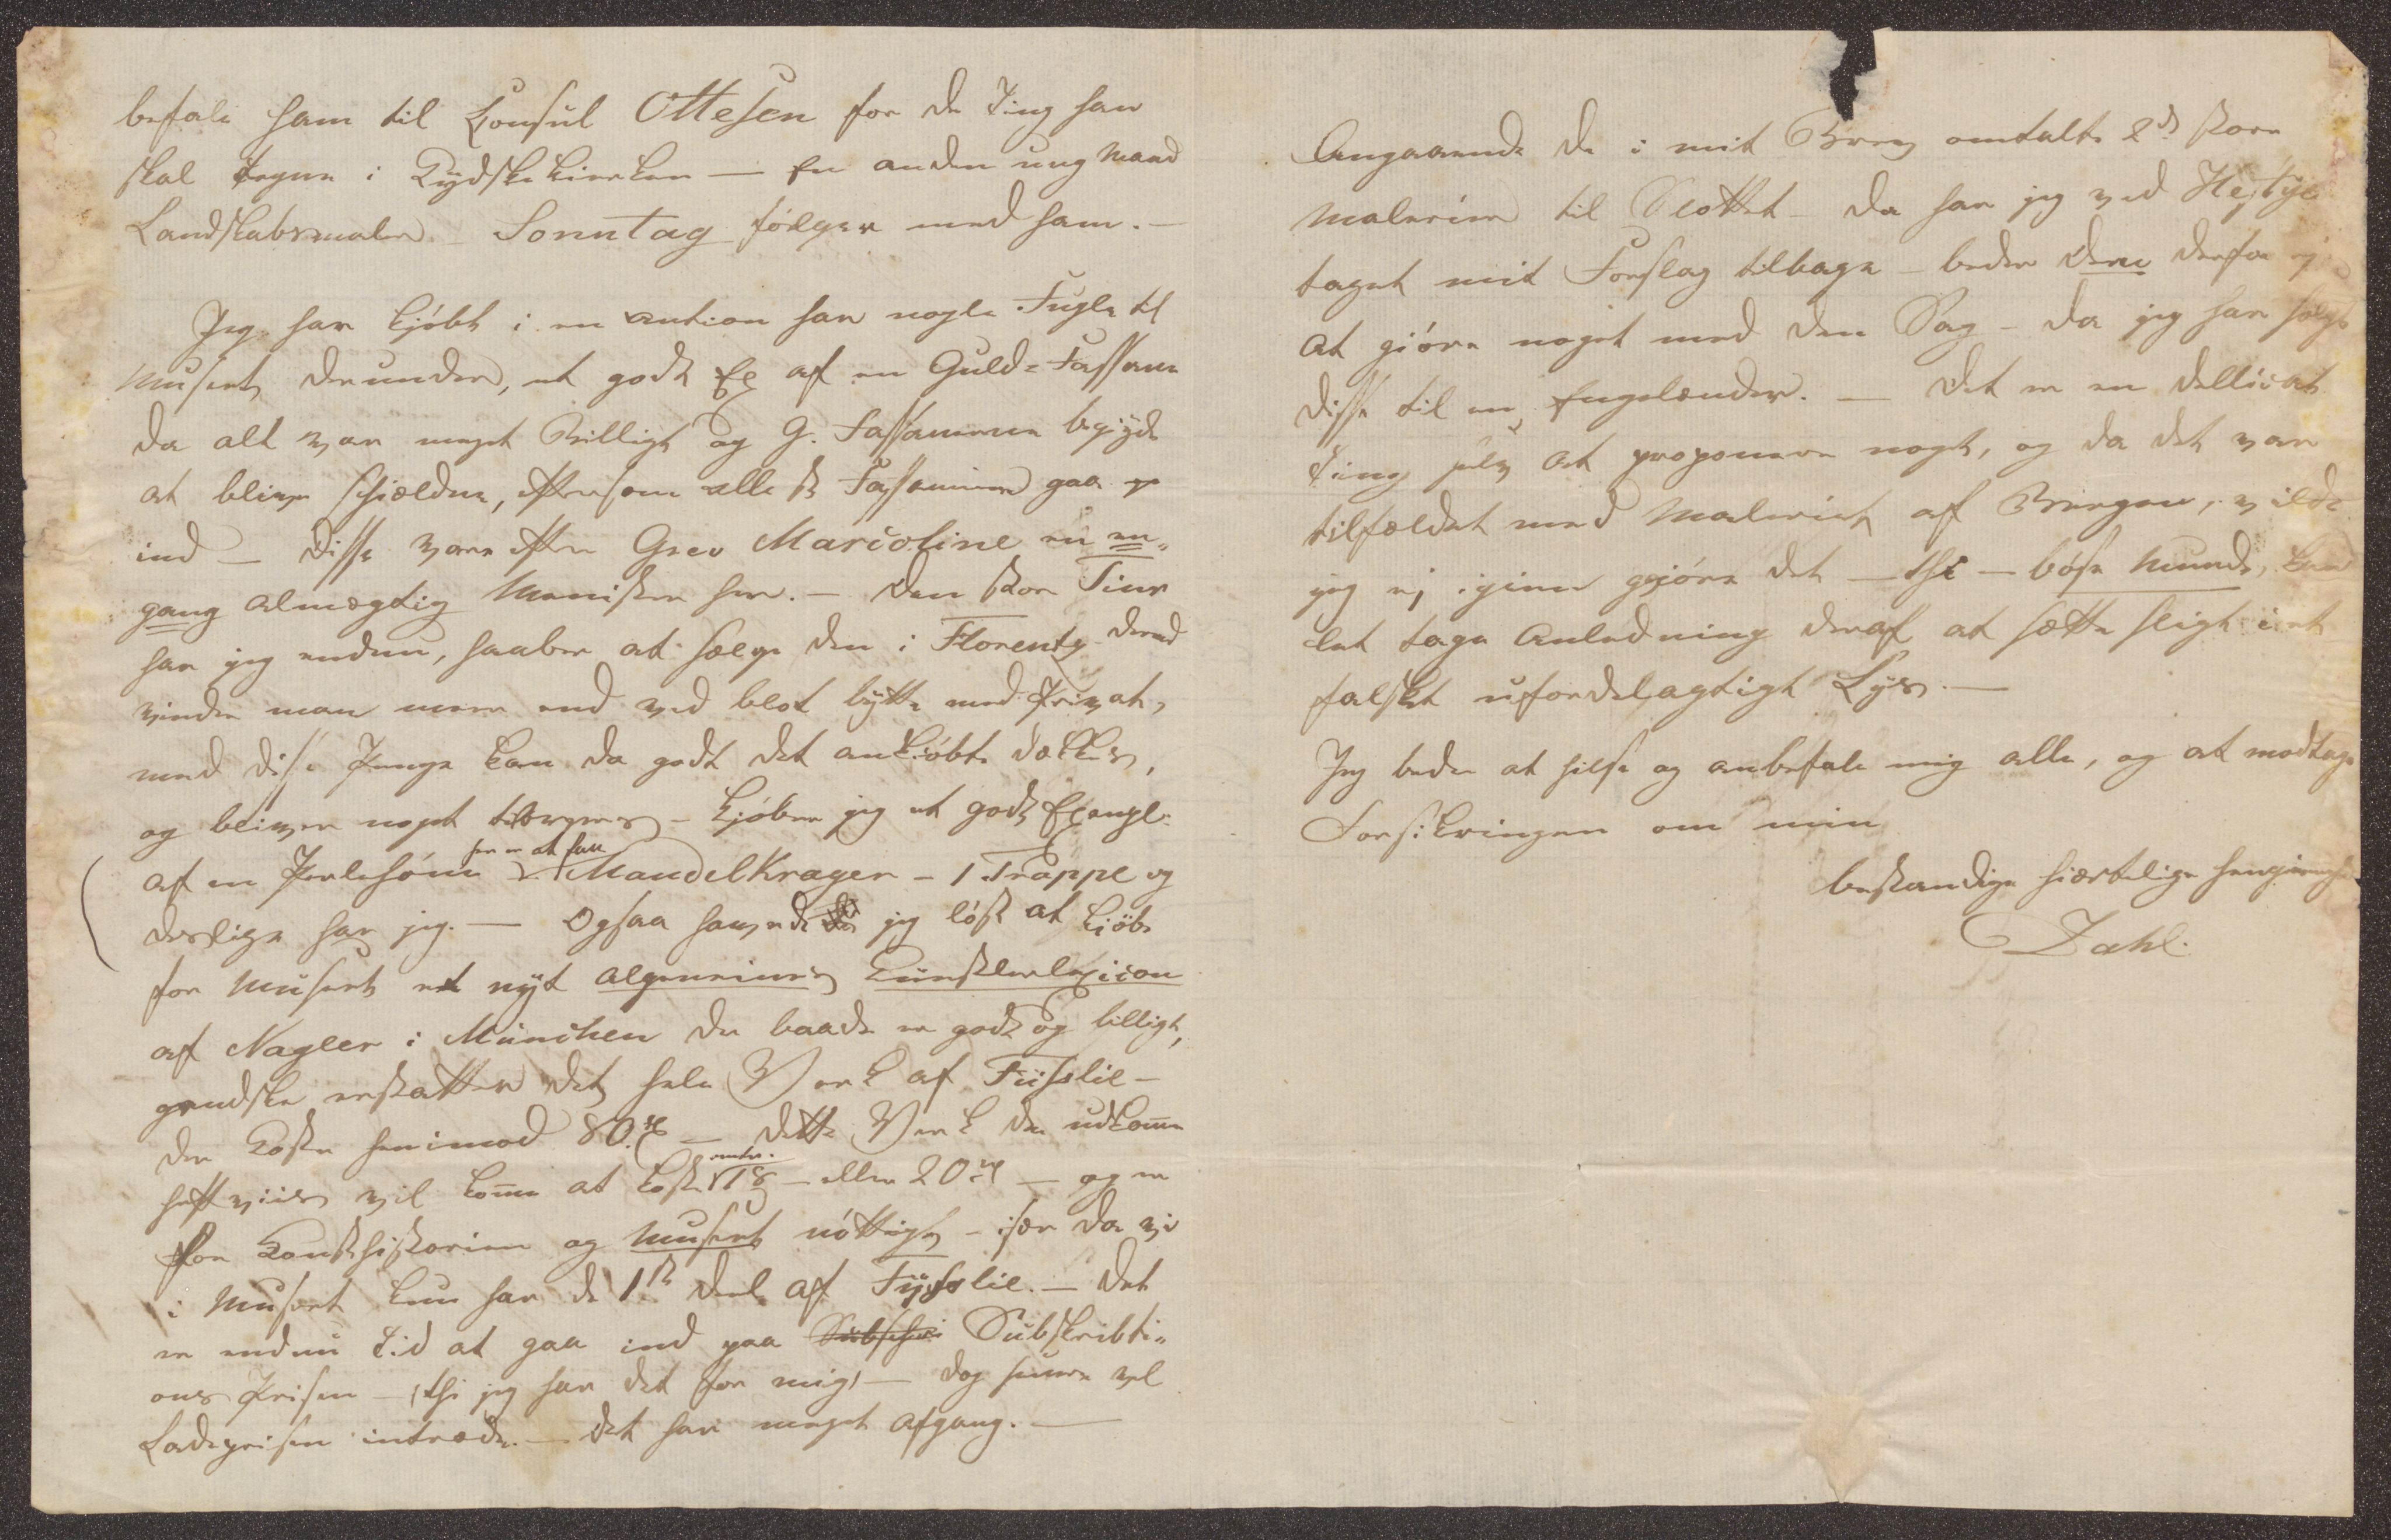 befale ham til Konsul Ottesen for de Ting han
skal tegne i Tÿdskekirken — En anden ung Mand
Landskabsmaler Sonntag fölger med ham. —
Jeg har kjöbt i en Auction her nogle Fugle til
Museet, derunder, et godt Ex af en Guld-Fassane
da alt var meget Billigt og G. Fassanerne begÿnde
at blive schieldne, eftersom alle K Fassanerier gaae ge
ind — Disse vare efter Grev Marcoline en en-
gang almægtig Menisker her. — Den store Tiur
har jeg endnu, haaber at sælge den i Florentz derved
vinder man mere end ved blot bÿtte med Privat,
med disse Penge kan da godt det ankiöbte dækkes,
og bliver noget tilovers — kjöber jeg et godt Exempl.
af en Perlehöne her er at faae v. Mandelkrager — 1 Trappe og
deslige har jeg. — Ogsaa havde jeg löst at kjöbe
for Museet et nÿt algemeines Künstlerlexicon
af Nagler i München der baade er godt og billigt,
gandske erstatter det hele Verk af Füsslie —
der koster henimod 80 rt — dette Verk der udkom̄er
heftviis vil kom̄e at koste omtr. 18 — eller 20 rt — og er
for Konsthistorien og Museet nöttigt, — især da vi
i Museet kun har de 1ste Deel af Fÿsslie. — Det
er endnu tid at gaa ind paa Subscri Subskribti-
ons Prisen — (thi jeg har det for mig) — dog snare vel
Ladeprisen intræde. — det har meget afgang. —
Angaaende de i mit Brev omtalte 2de store
Malerier til Slottet — da har jeg ved Hejtÿe
taget mit Forslag tilbage — beder Dem derfor ej
at giöre noget med den Sag — da jeg har solgt
disse til en Engelænder. — Det er en dellicat
Ting selv at proponere noget, og da det var
tilfældet med Maleriet af Bergen, vilde
jeg ej igien gjöre det — thi — böse Munde, kun
let tage Anledning deraf at sætte sligt i et
falskt ufordelagtigt Lÿs. —
Jeg beder at hilse og anbefale mig alle, og at modtage
Forsikringen om min
bestandige hiertelige hengivenhed
Dahl.